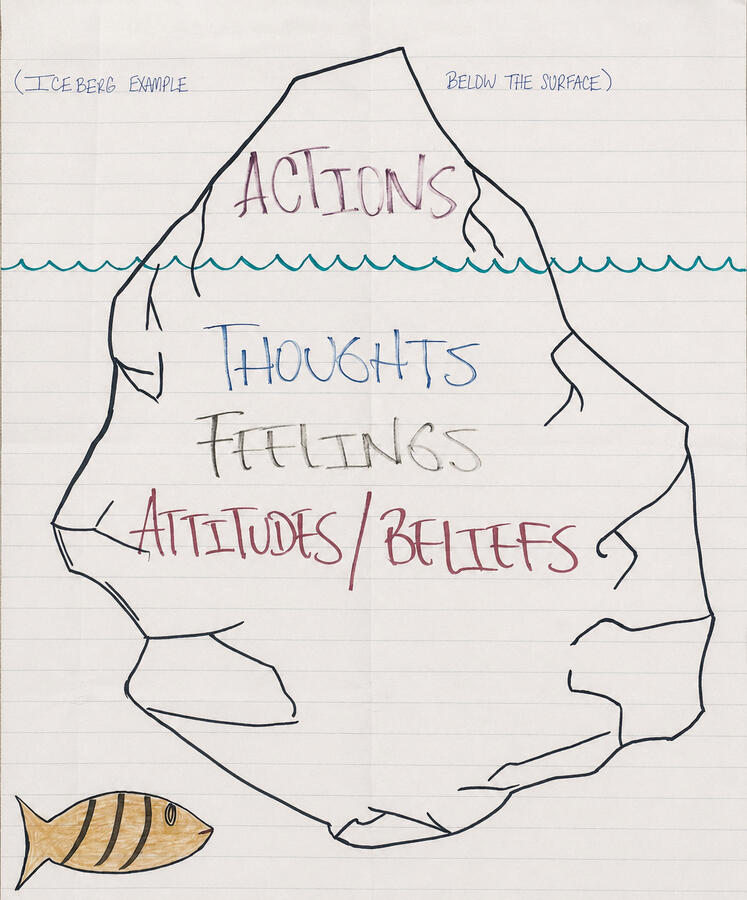 (ICEBERG EXAMPLE
BELOW THE SURFACE)
ACTIONS
THOUGHTS
FEELINGS
ATTITUDES/BELIEFS